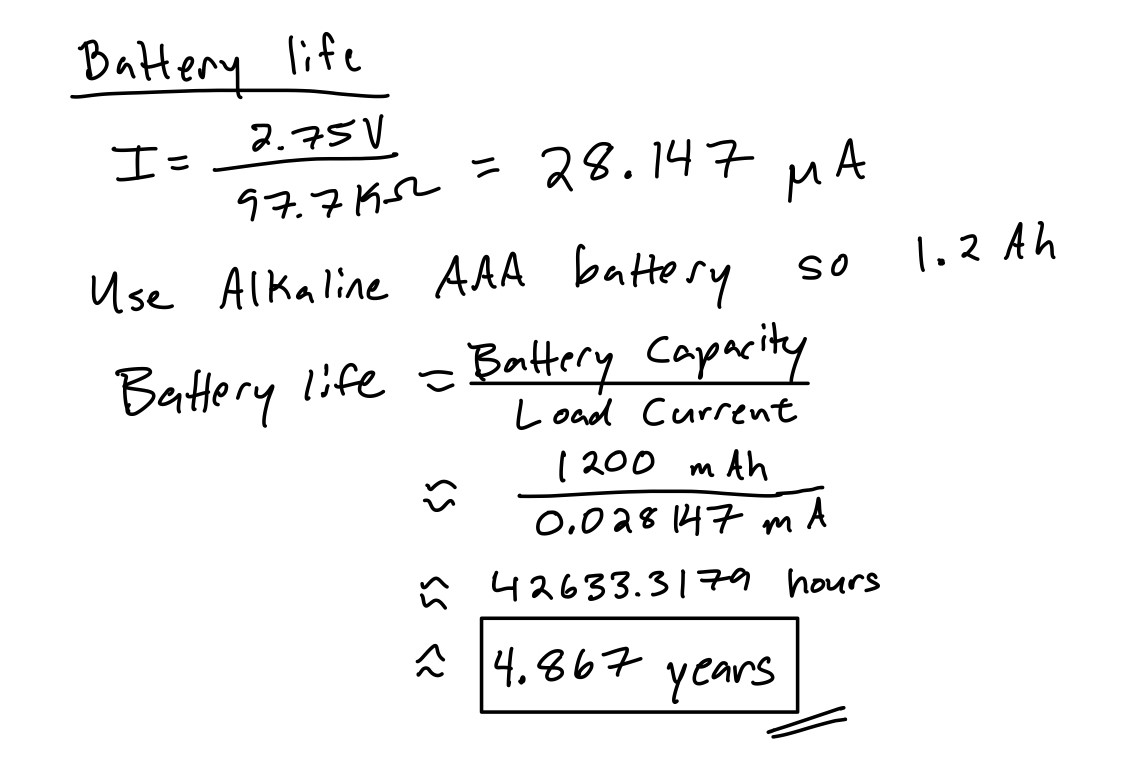 Battery life
I = 2.75V / 97.7KΩ = 28.147 μA
Use Alkaline AAA battery so 1.2 Ah
Battery life = Battery Capacity / Load Current
≈ 1200 mAh / 0.028147 mA
≈ 42633.3179 hours
≈ 4.867 years